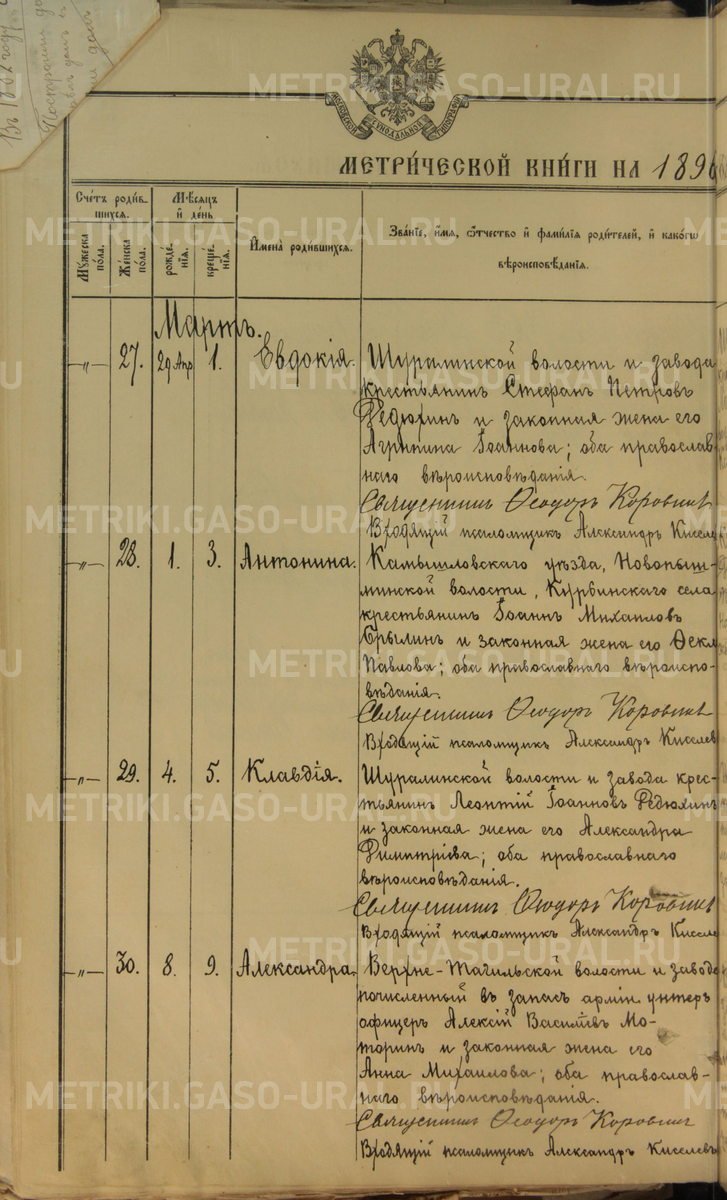 METRIKI.GASO-URAL.RU
МОСКОВСКОЙ СѴНОДАЛЬНОЙ ТИПОГРАФІИ
МЕТРИ́ЧЕСКОЙ КНИ́ГИ НА 1896
Сче́тъ роди́в-
шихся.
Мѣ́сяцъ
и҆ де́нь
Мꙋ́жеска по́ла.
Же́нска по́ла.
рожде́-нїѧ.
креще́-нїѧ.
И҆мена̀ роди́вшихсѧ.
Зва́нїе, и҆́мѧ, ѻ҆́тчество и҆ фами́лїѧ роди́телей, и҆ како́гѡ
вѣроисповѣ́данїѧ.
Мартъ.
—„— 27. 29 1. Евдокія. Шуралинской волости и завода
крестьянинъ Стефанъ Петровъ
Редюхинъ и законная жена его
Агрипина Іоаннова; оба православ-
наго вѣроисповѣданія.
Священникъ Ѳеодоръ Коровинъ
Входящій псаломщикъ Александръ Киселе
—„— 28. 1. 3. Антонина. Камышловскаго уѣзда, Новопыш-
минской волости, Курьинскаго села
крестьянинъ Іоаннъ Михаиловъ
Брылинъ и законная жена его Ѳекл
Павлова; оба православнаго вѣроиспо-
вѣданія.
Священникъ Ѳеодоръ Коровинъ
Входящій псаломщикъ Александръ Киселев
—„— 29. 4. 5. Клавдія. Шуралинской волости и завода крес-
тьянинъ Леонтій Іоанновъ Редюхинъ
и законная жена его Александра
Димитріева; оба православнаго
вѣроисповѣданія.
Священникъ Ѳеодоръ Коровинъ
Входящій псаломщикъ Александръ Киселе
—„— 30. 8. 9. Александра. Верхне-Тагильской волости и завода
зачисленный въ запасъ арміи унтеръ
офицеръ Алексій Васильевъ Мо-
торинъ и законная жена его
Анна Михаилова; оба православ-
наго вѣроисповѣданія.
Священникъ Ѳеодоръ Коровинъ
Входящій псаломщикъ Александръ Киселевъ